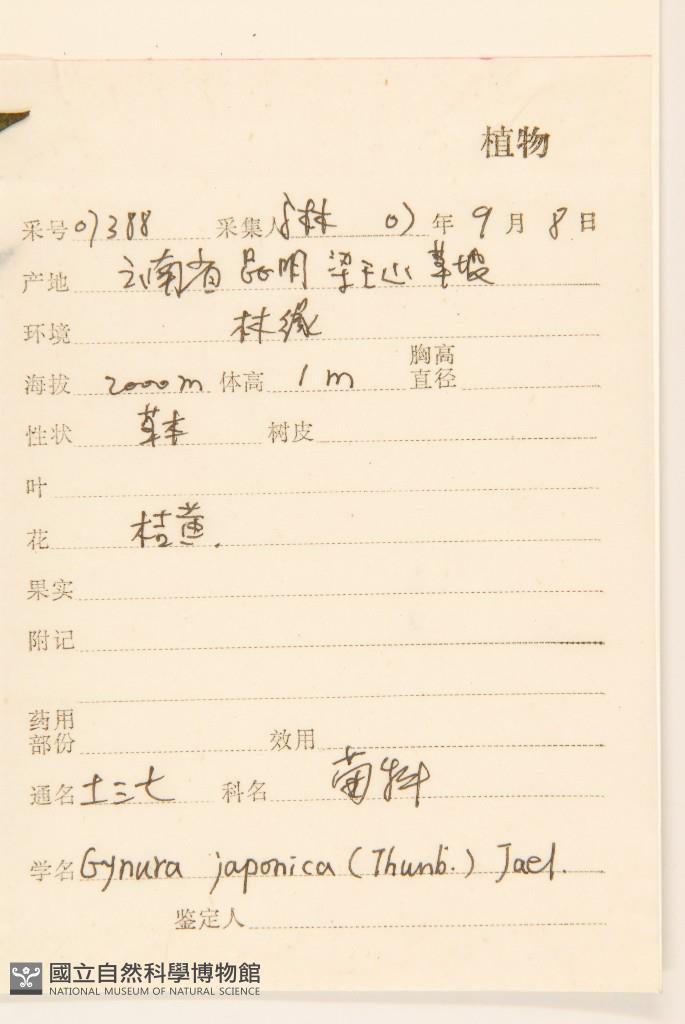 植物
采号 07388 采集人 林 07 年 9 月 8 日
产地 云南省昆明梁王山草坡
环境 林缘
海拔 2000m 体高 1m 胸高直径
性状 草本 树皮
叶
花 桔黄.
果实
附记
药用部份 效用
通名 土三七 科名 菊科
学名 Gynura japonica (Thunb.) Jael.
鉴定人
國立自然科學博物館
NATIONAL MUSEUM OF NATURAL SCIENCE